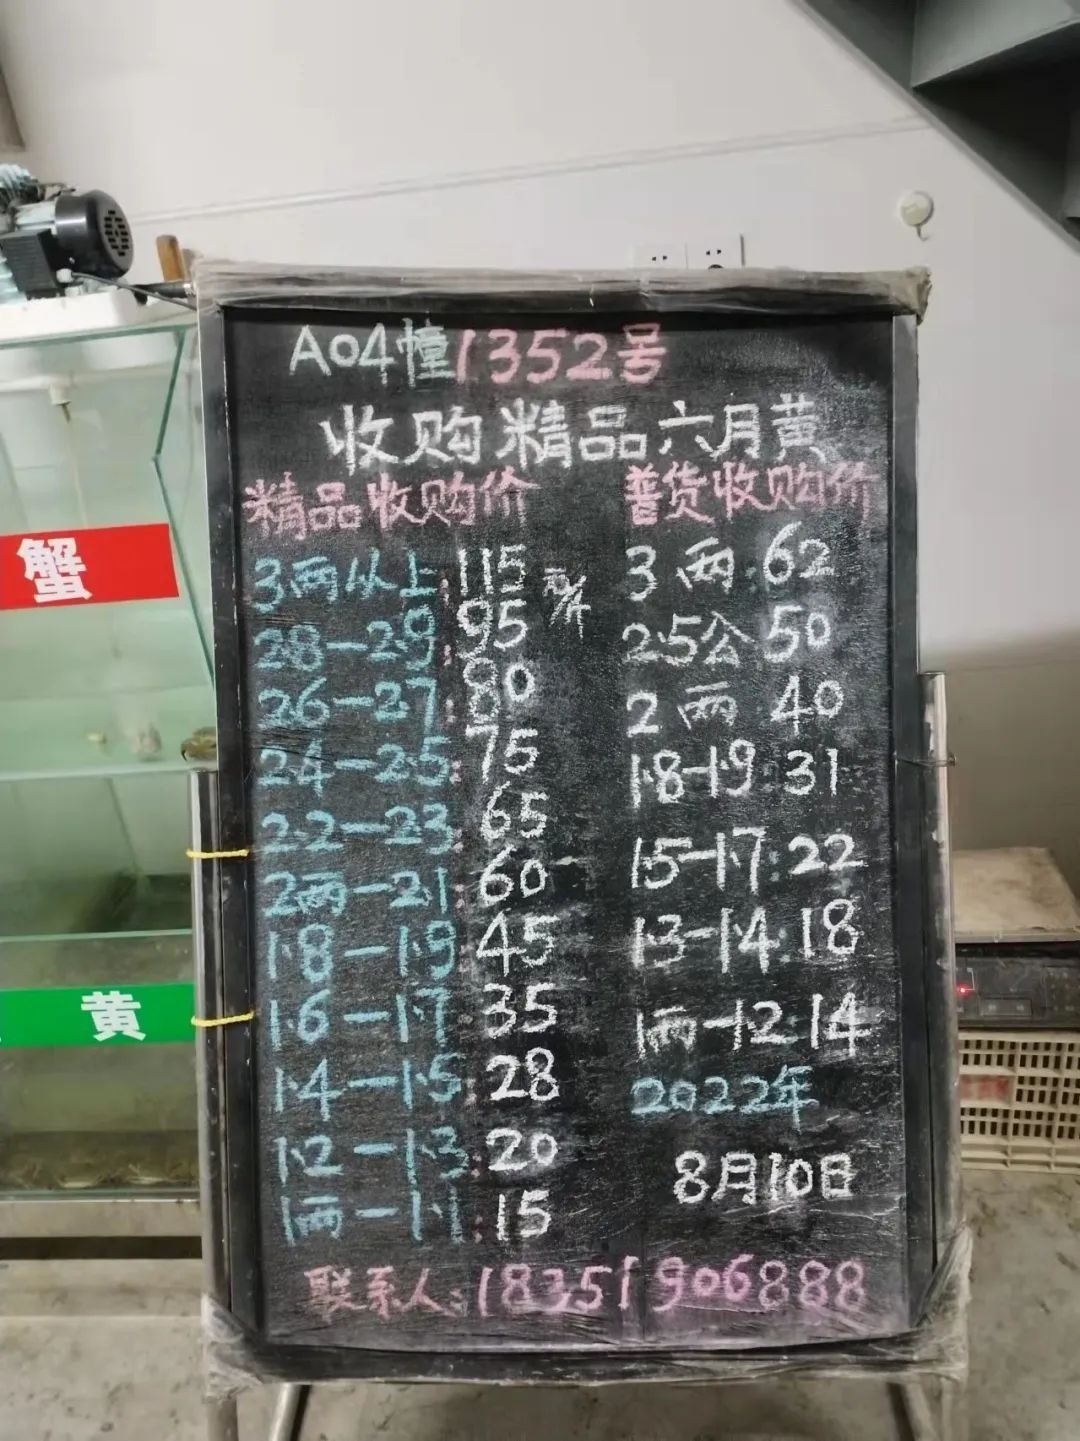 A04幢1352号
收购精品六月黄
精品收购价
3两从上:115元/斤
28-2.9:95
26-2.7:80
24-2.5:75
2.2-2.3:65
2两-2.1:60-
1.8-1.9:45
1.6-1.7:35
1.4-1.5:28
1.2-1.3:20
1两-1.1:15
普货收购价
3两:62
2.5公 50
2两 40
1.8-1.9:31
1.5-1.7:22
1.3-1.4:18
1两-1.2:14
2022年
8月10日
联系人:18351906888
蟹
黄